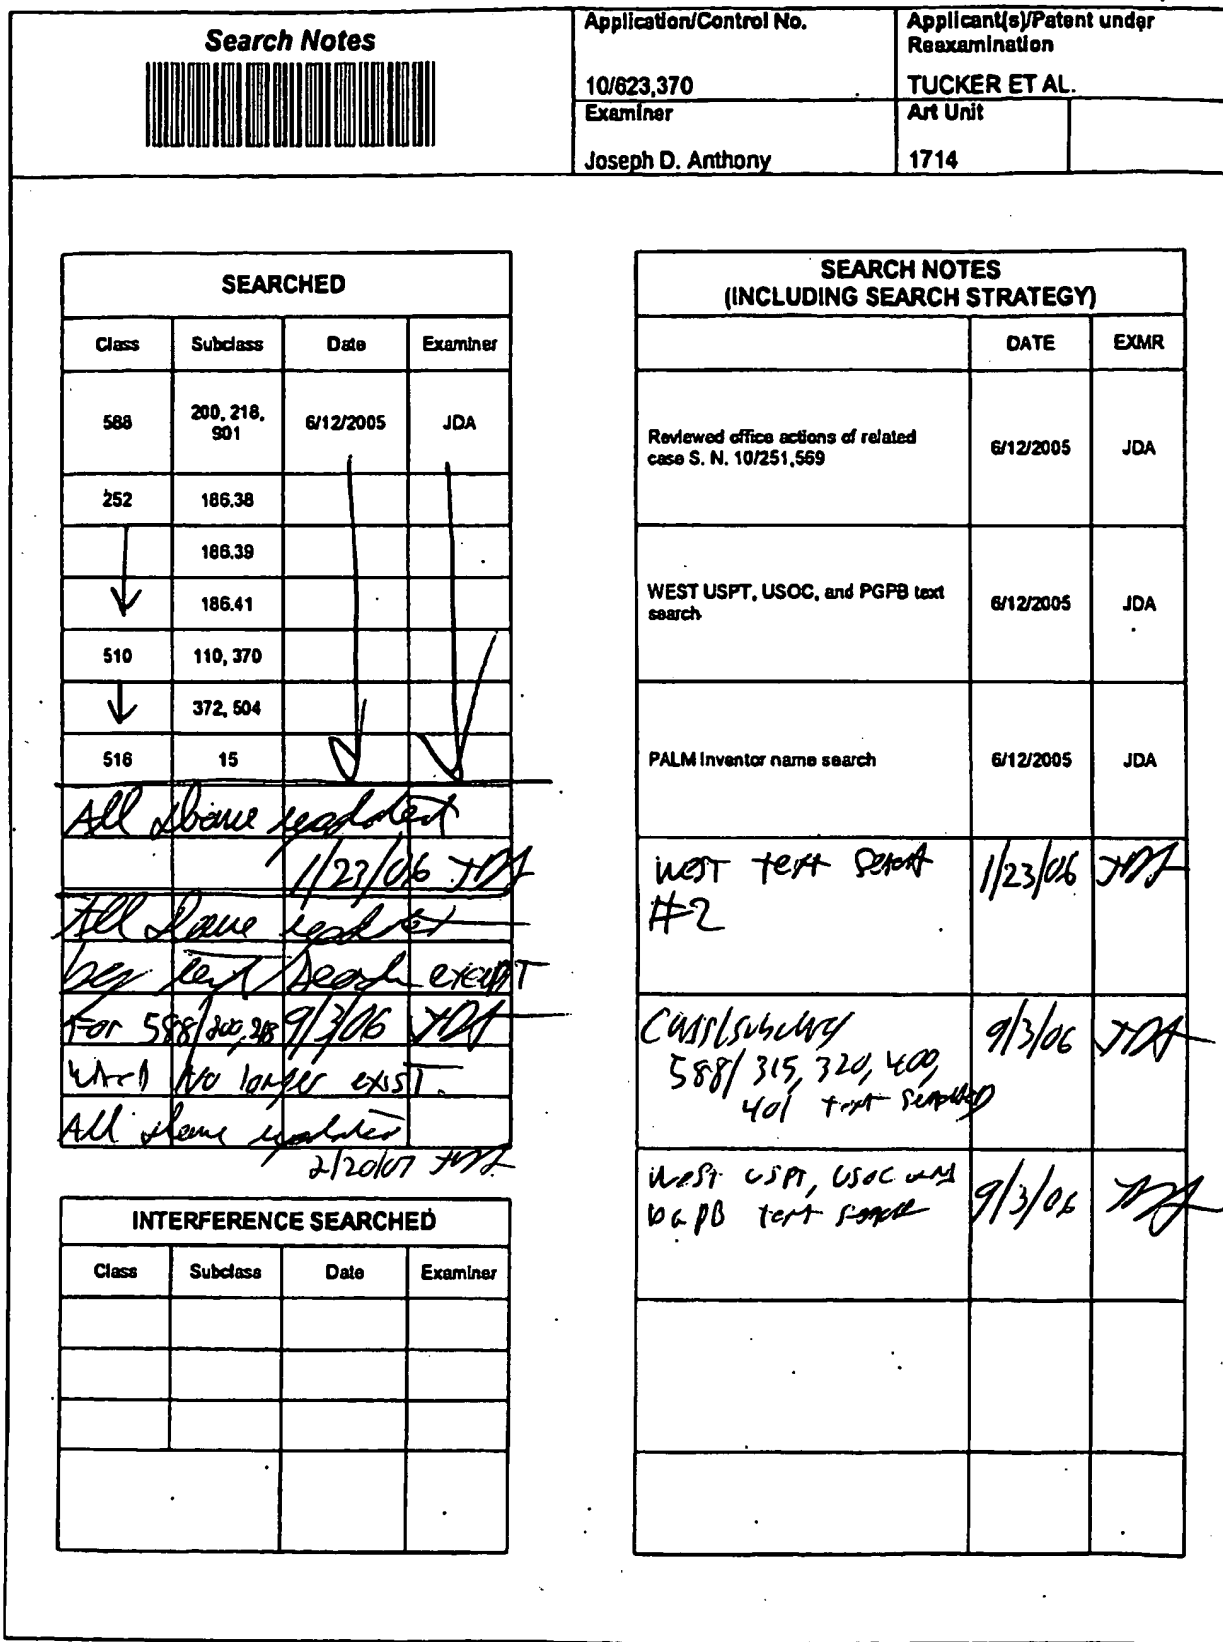 Search Notes
Application/Control No.
10/623,370
Applicant(s)/Patent under
Reexamination
TUCKER ET AL.
Examiner
Joseph D. Anthony
Art Unit
1714
SEARCHED
Class Subclass Date Examiner
588 200, 218, 901 6/12/2005 JDA
252 186.38
186.39
186.41
510 110, 370
372, 504
516 15
All above updated
1/23/06 JDA
All above updated
by text search except
For 588/200, 218 9/3/06 JDA
which no longer exist.
All above updated
2/20/07 JDA
INTERFERENCE SEARCHED
Class Subclass Date Examiner
SEARCH NOTES
(INCLUDING SEARCH STRATEGY)
DATE EXMR
Reviewed office actions of related
case S. N. 10/251,569 6/12/2005 JDA
WEST USPT, USOC, and PGPB text
search 6/12/2005 JDA
PALM Inventor name search 6/12/2005 JDA
WEST text search 1/23/06 JDA
#2
Class/subclass 9/3/06 JDA
588/ 315, 320, 400,
401 text searched
West USPT, USOC and
PGPB text search 9/3/06 JDA